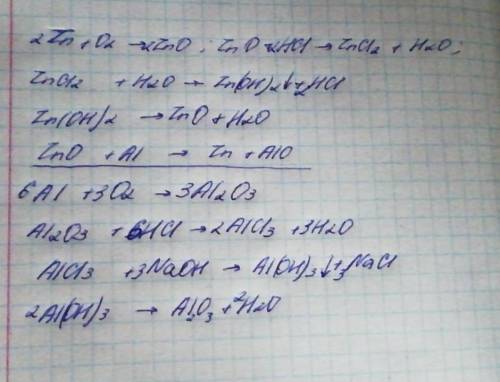 2Zn + O2 → 2ZnO ; ZnO + 2HCl → ZnCl2 + H2O ;
ZnCl2 + H2O → Zn(OH)2↓ + 2HCl
Zn(OH)2 → ZnO + H2O
ZnO + Al → Zn + AlO
6Al + 3O2 → 3Al2O3
Al2O3 + 6HCl → 2AlCl3 + 3H2O
AlCl3 + 3NaOH → Al(OH)3↓ + 3NaCl
2Al(OH)3 → Al2O3 + 2H2O